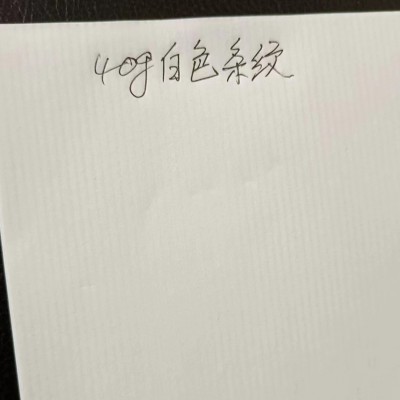 40g白色条纹